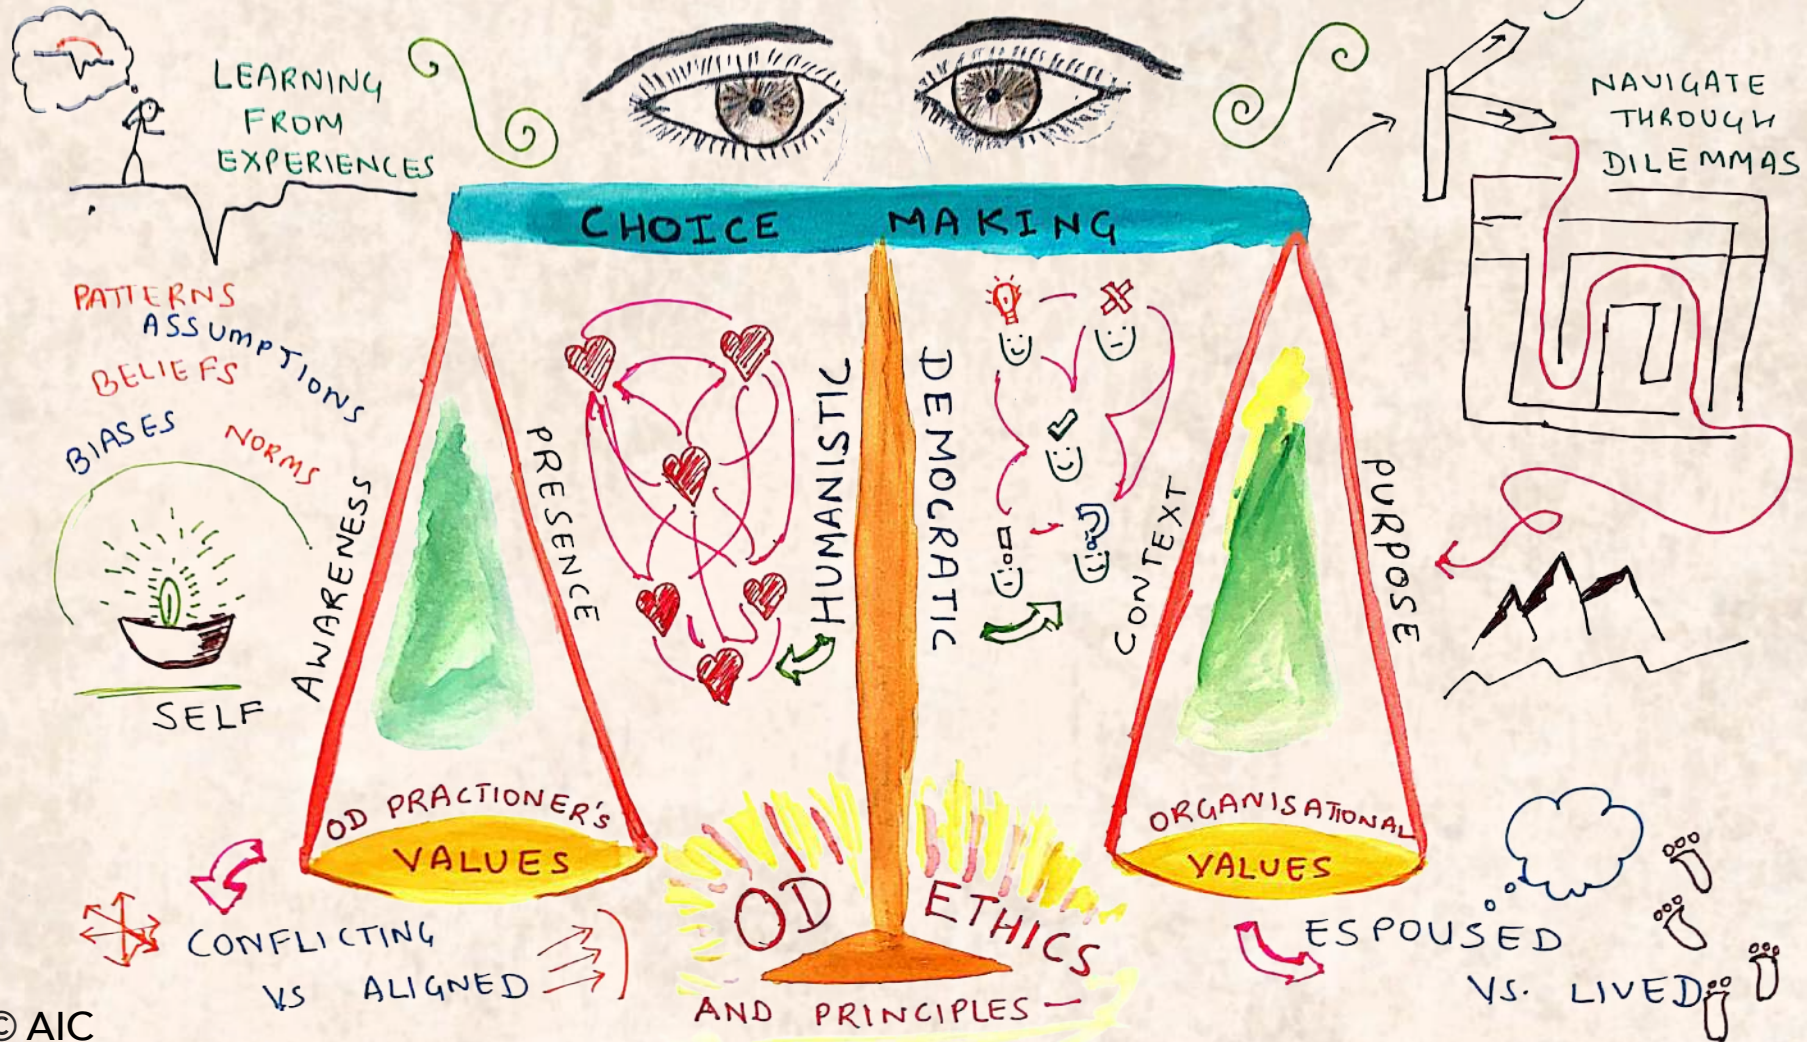 LEARNING
FROM
EXPERIENCES
NAVIGATE
THROUGH
DILEMMAS
CHOICE MAKING
PATTERNS
ASSUMPTIONS
BELIEFS
BIASES
NORMS
SELF
AWARENESS
PRESENCE
HUMANISTIC
DEMOCRATIC
CONTEXT
PURPOSE
OD PRACTIONER'S
VALUES
ORGANISATIONAL
VALUES
CONFLICTING
VS ALIGNED
OD ETHICS
AND PRINCIPLES —
ESPOUSED
VS. LIVED
© AIC